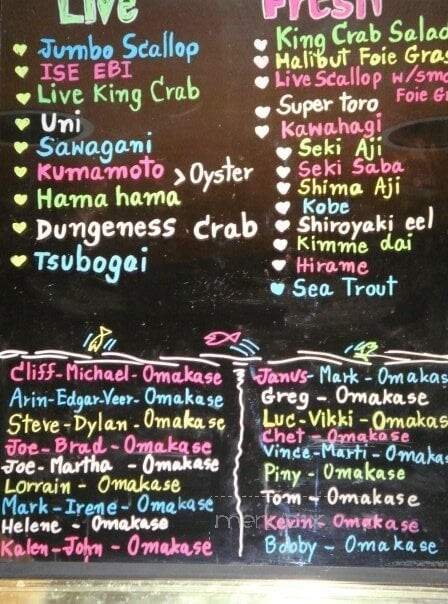 Live
Jumbo Scallop
ISE EBI
Live King Crab
Uni
Sawagani
Kumamoto > Oyster
Hama hama
Dungeness Crab
Tsubogai
Fresh
King Crab Salad
Halibut Foie Gras
Live Scallop w/sm
Foie Gr
Super toro
Kawahagi
Seki Aji
Seki Saba
Shima Aji
Kobe
Shiroyaki eel
Kimme dai
Hirame
Sea Trout
Cliff-Michael-Omakase
Arin-Edgar-Veer-Omakase
Steve-Dylan-Omakase
Joe-Brad-Omakase
Joe-Martha-Omakase
Lorrain-Omakase
Mark-Irene-Omakase
Helene-Omakase
Kalen-John-Omakase
Janus-Mark-Omakas
Greg-Omakase
Luc-Vikki-Omakas
Chet-Omakase
Vince-Marti-Omakas
Piny-Omakase
Tom-Omakase
Kevin-Omakase
Bobby-Omakase